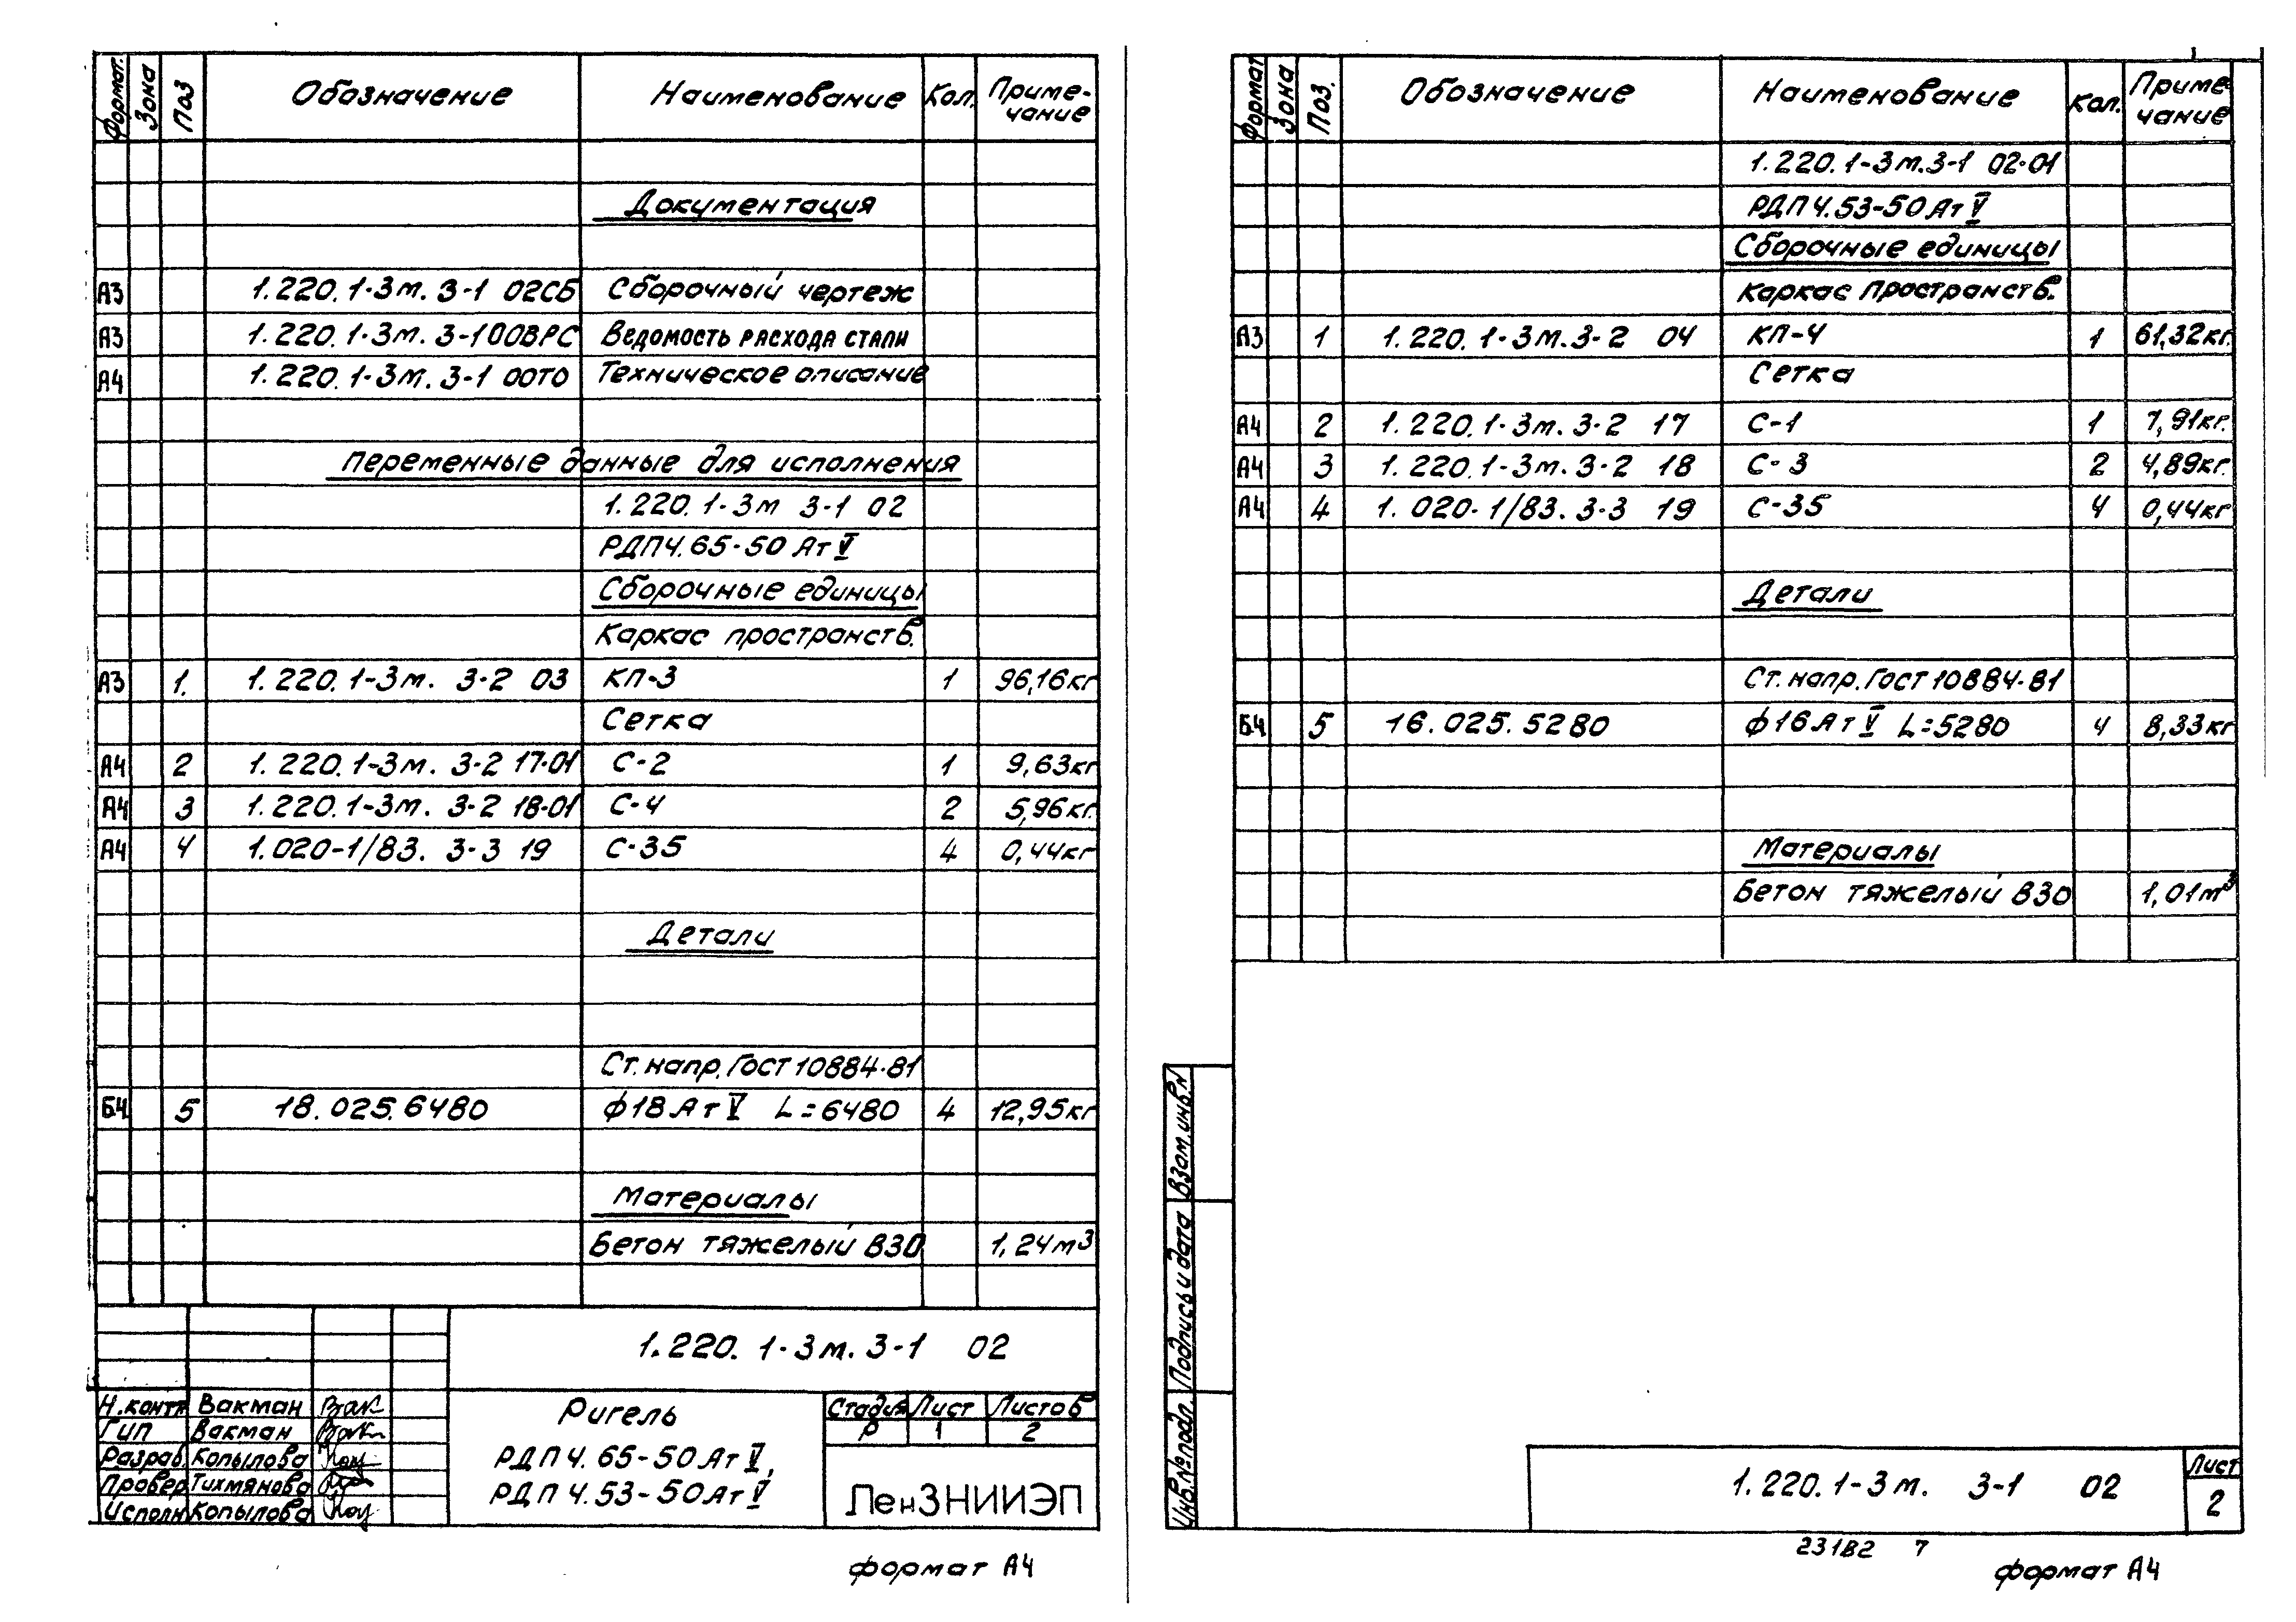 Формат. Зона Поз Обозначение Наименование Кол. Приме-
чание
Документация
А3 1.220.1-3м.3-1 02СБ Сборочный чертеж
А3 1.220.1-3м.3-1 00ВРС Ведомость расхода стали
А4 1.220.1-3м.3-1 00ТО Техническое описание
Переменные данные для исполнения
1.220.1-3м 3-1 02
РДП4.65-50 АтV
Сборочные единицы
Каркас пространств.
А3 1. 1.220.1-3м. 3-2 03 КП-3 1 96,16кг
Сетка
А4 2 1.220.1-3м. 3-2 17-01 С-2 1 9,63кг
А4 3 1.220.1-3м. 3-2 18-01 С-4 2 5,96кг.
А4 4 1.020-1/83. 3-3 19 С-35 4 0,44кг
Детали
Ст. напр. Гост 10884-81
Б4 5 18.025.6480 ф18 АтV L=6480 4 12,95кг
Материалы
Бетон тяжелый В30 1,24м³
1.220.1-3м.3-1 02
Н.контр Вакман
ГИП Вакман
Разраб. Копылова
Провер. Тихмянова
Исполн Копылова
Ригель
РДП4.65-50АтV,
РДП4.53-50АтV
Стадия Лист Листов
Р 1 2
ЛенЗНИИЭП
формат А4
Формат Зона Поз. Обозначение Наименование Кол. Приме
чание
1.220.1-3м.3-1 02-01
РДП4.53-50АтV
Сборочные единицы
Каркас пространств.
А3 1 1.220.1-3м.3-2 04 КП-4 1 61,32кг.
Сетка
А4 2 1.220.1-3м.3-2 17 С-1 1 7,91кг.
А4 3 1.220.1-3м.3-2 18 С-3 2 4,89кг.
А4 4 1.020-1/83.3-3 19 С-35 4 0,44кг
Детали
Ст. напр. Гост 10884-81
Б4 5 16.025.5280 ф16АтV L=5280 4 8,33кг
Материалы
Бетон тяжелый В30 1,01м³
Взам.инв.№
Подпись и дата
Инв.№подл.
1.220.1-3м. 3-1 02
Лист
2
23182 7
формат А4